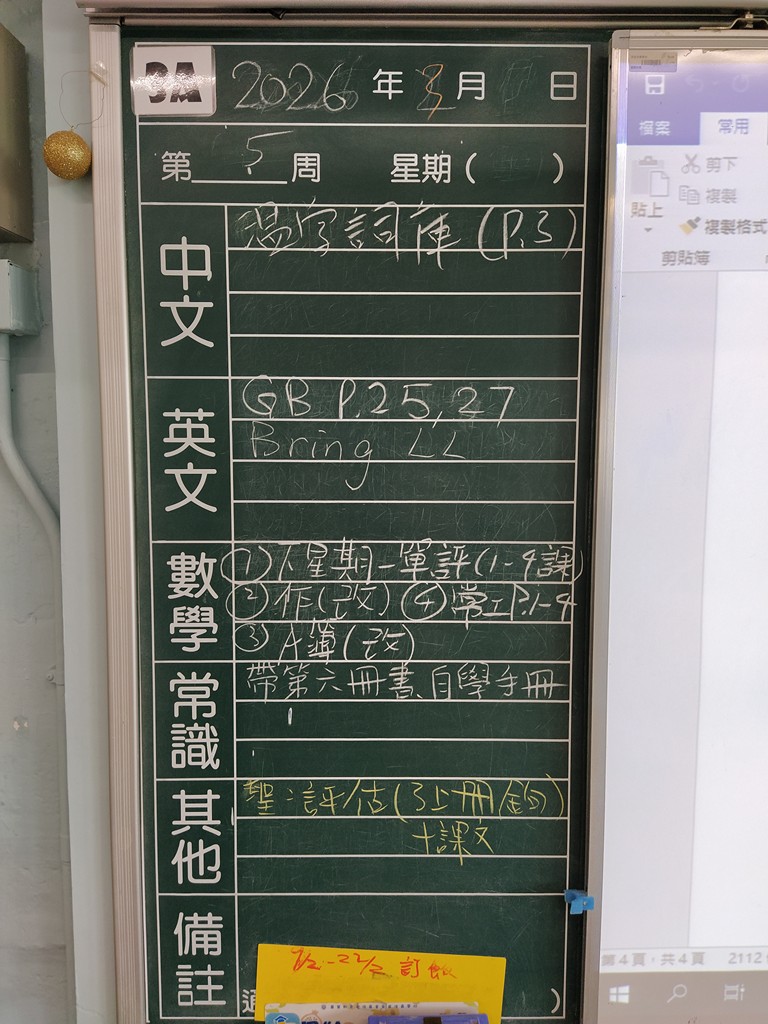 3A 2026 年 3 月 日
第 5 周 星期( )
中文
温字詞庫(P.3)
英文
GB P.25,27
Bring LL
數學
①下星期一單評(1-4課)
②作(改) ④常工P.1-4
③A簿(改)
常識
帶第六冊書、自學手冊
其他
聖:評估(3上冊
+課文
備註
訂飯
檔案 常用
剪下
複製
貼上
複製格式
剪貼簿
第4頁,共4頁 2112